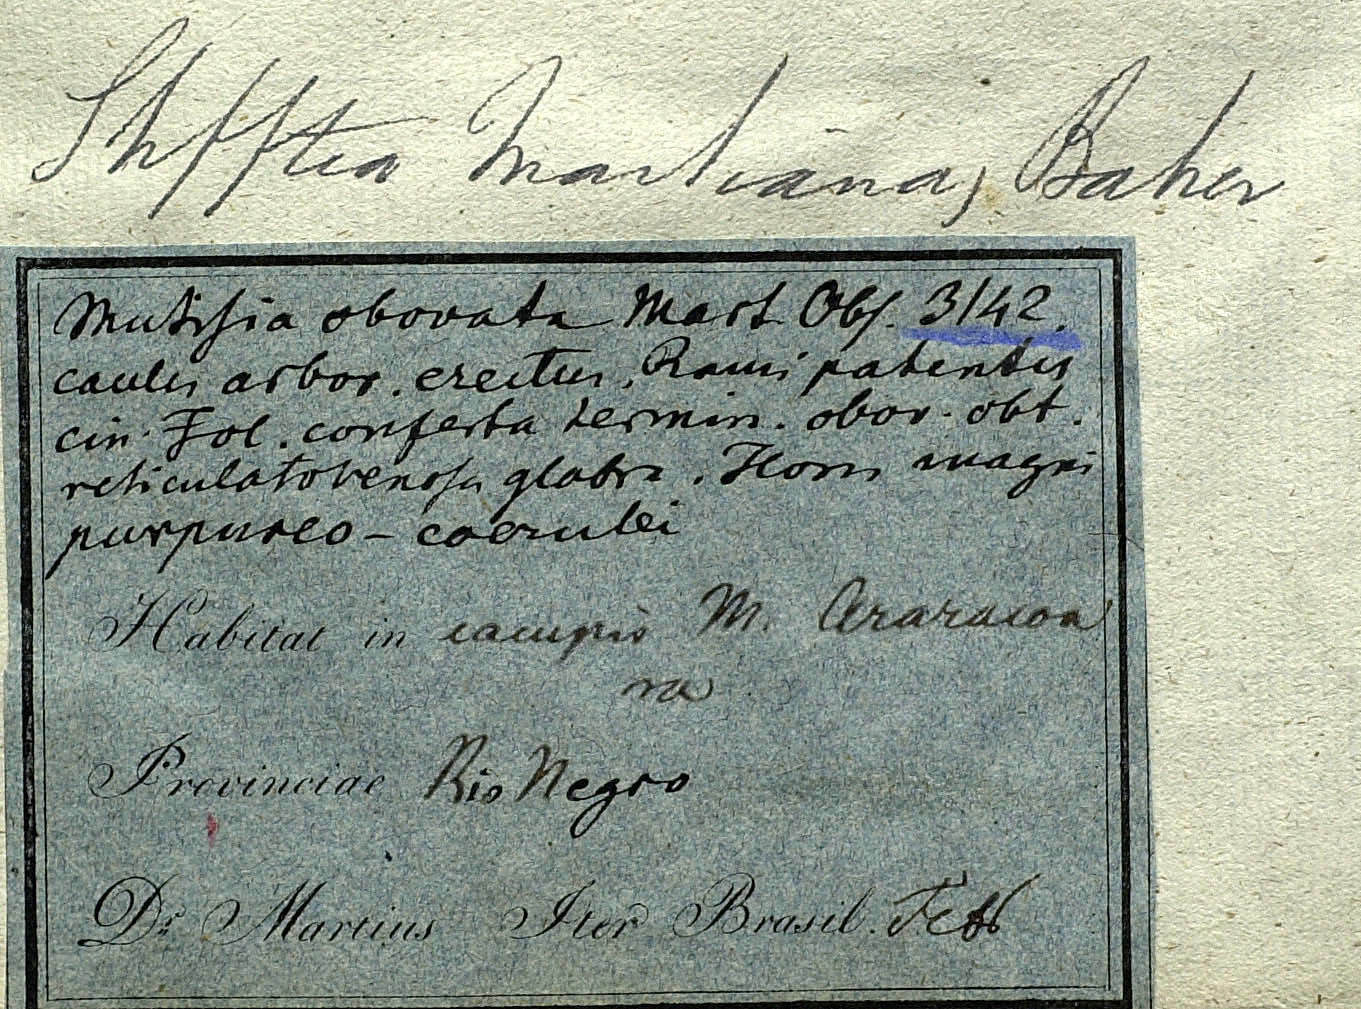 Stifftia Martiana, Baker
Mutisia obovata Mart. Obs. 3142.
caulis arbor. erectus, Rami patentes
cin. Fol. conferta termin. obov. obt.
reticulatovenosa glabra. Flores magni
purpureo - coerulei
Habitat in campis M. Araracoa
ra
Provinciae Rio Negro
Dr. Martius Iter Brasil. Feb